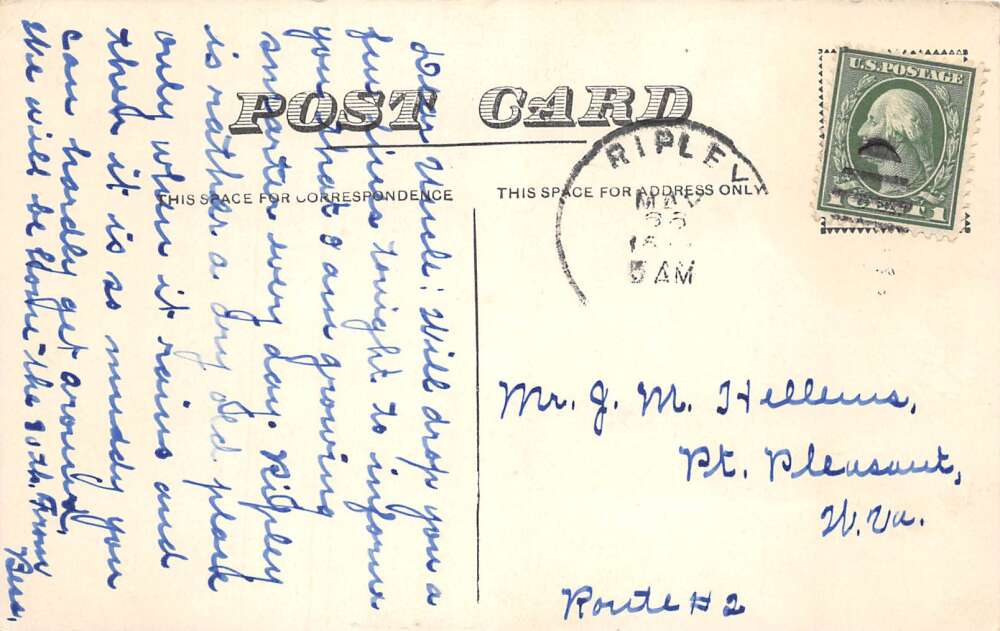 POST CARD
THIS SPACE FOR CORRESPONDENCE
THIS SPACE FOR ADDRESS ONLY
Dear Uncle: Will drop you a
few lines tonight to inform
you that I am growing
smarter every day. Ripley
is rather a dry old place
only when it rains and
then it is so muddy you
can hardly get around,
We will be home the 30th. From
Bess,
RIPLEY
5 AM
U.S. POSTAGE
1 CENT 1
Mr. J. M. Hellems,
Pt. Pleasant,
W. Va.
Route # 2